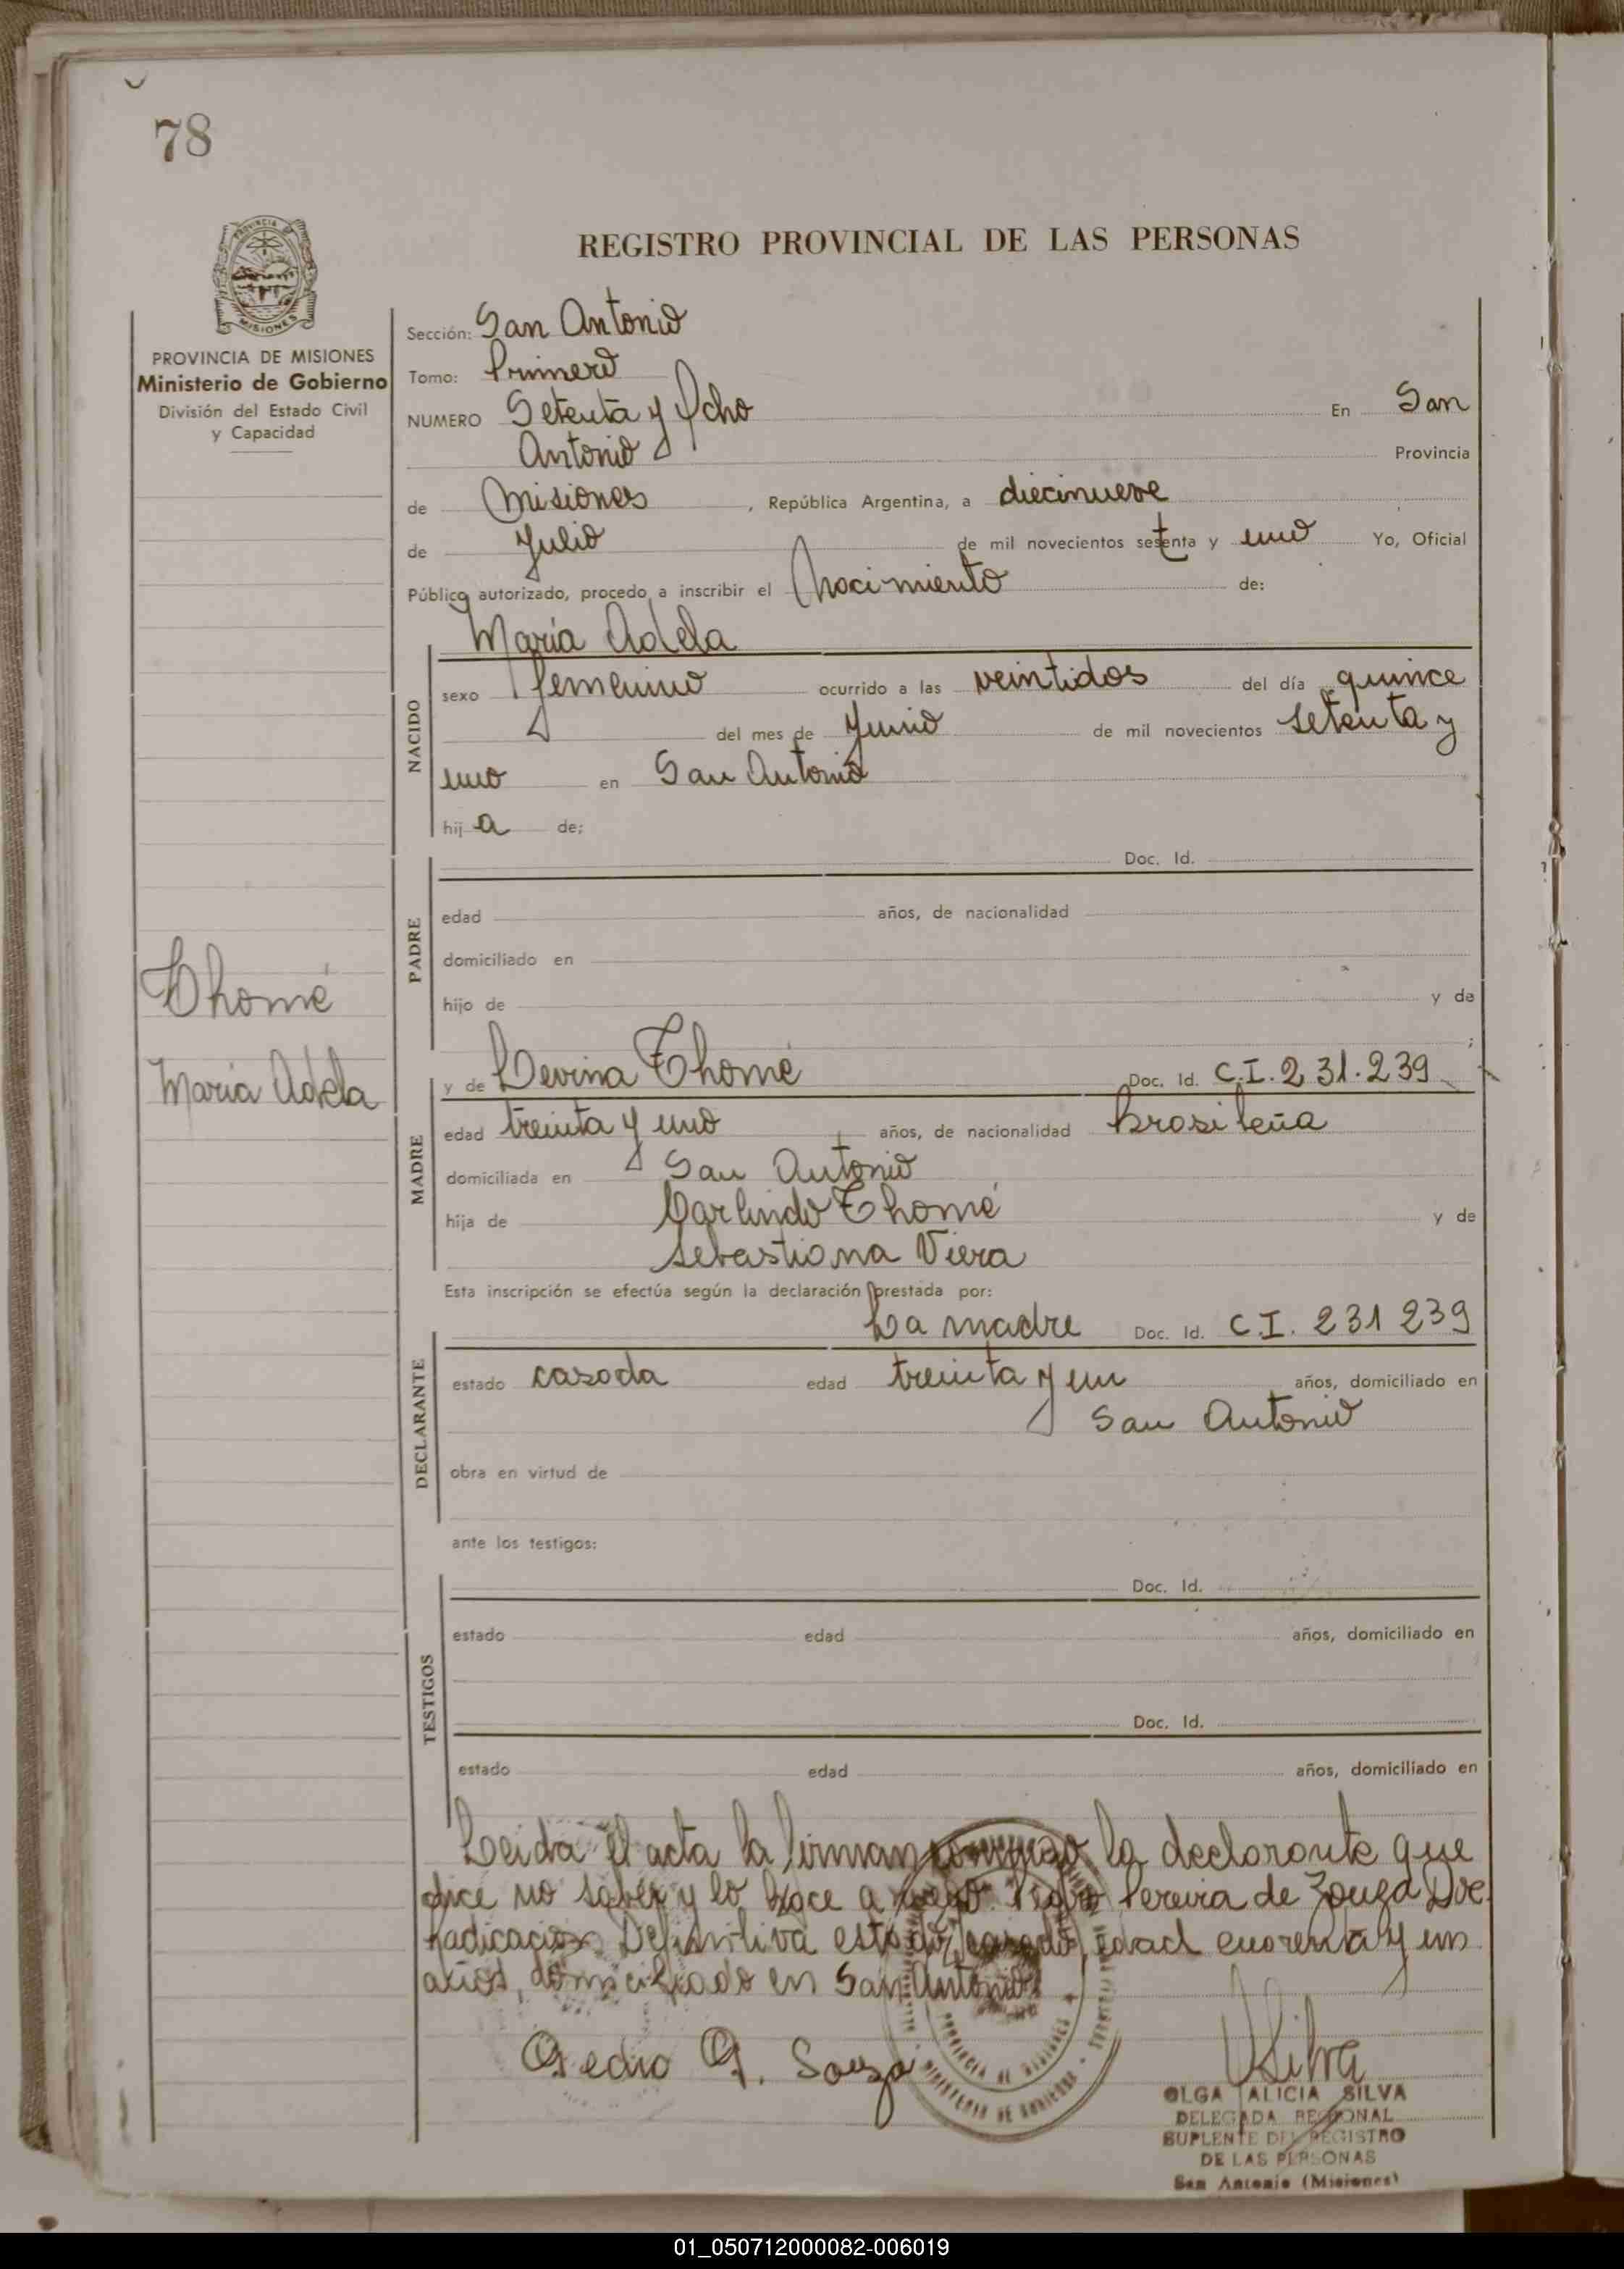 78
REGISTRO PROVINCIAL DE LAS PERSONAS
PROVINCIA DE
MISIONES
PROVINCIA DE MISIONES
Ministerio de Gobierno
División del Estado Civil
y Capacidad
Sección: San Antonio
Tomo: Primero
NUMERO Setenta y Ocho En San
Antonio Provincia
de Misiones, República Argentina, a diecinueve
de Julio de mil novecientos setenta y uno Yo, Oficial
Público autorizado, procedo a inscribir el Nacimiento de:
NACIDO
María Adela
sexo femenino ocurrido a las veintidos del día quince
del mes de Junio de mil novecientos setenta y
uno en San Antonio
hija de:
PADRE
Doc. Id.
edad años, de nacionalidad
domiciliado en
hijo de y de
;
Thomé
Maria Adela
MADRE
y de Levina Thomé Doc. Id. C.I. 231.239
edad treinta y uno años, de nacionalidad Brasileña
domiciliada en San Antonio
hija de Carlindo Thomé y de
Sebastiana Viera
Esta inscripción se efectúa según la declaración prestada por:
DECLARANTE
La madre Doc. Id. C.I. 231 239
estado casada edad treinta y un años, domiciliado en
San Antonio
obra en virtud de
ante los testigos:
TESTIGOS
Doc. Id.
estado edad años, domiciliado en
Doc. Id.
estado edad años, domiciliado en
Leida el acta la firman conmigo la declarante que
dice no saber y lo hace a ruego Pedro Pereira de Souza Doc.
Radicacion Definitiva estado casado, edad cuarenta y un
años, domiciliado en San Antonio
Pedro P. Souza
PROVINCIA DE MISIONES
MINISTERIO DE GOBIERNO
OSilva
OLGA ALICIA SILVA
DELEGADA REGIONAL
SUPLENTE DEL REGISTRO
DE LAS PERSONAS
San Antonio (Misiones)
01_050712000082-006019